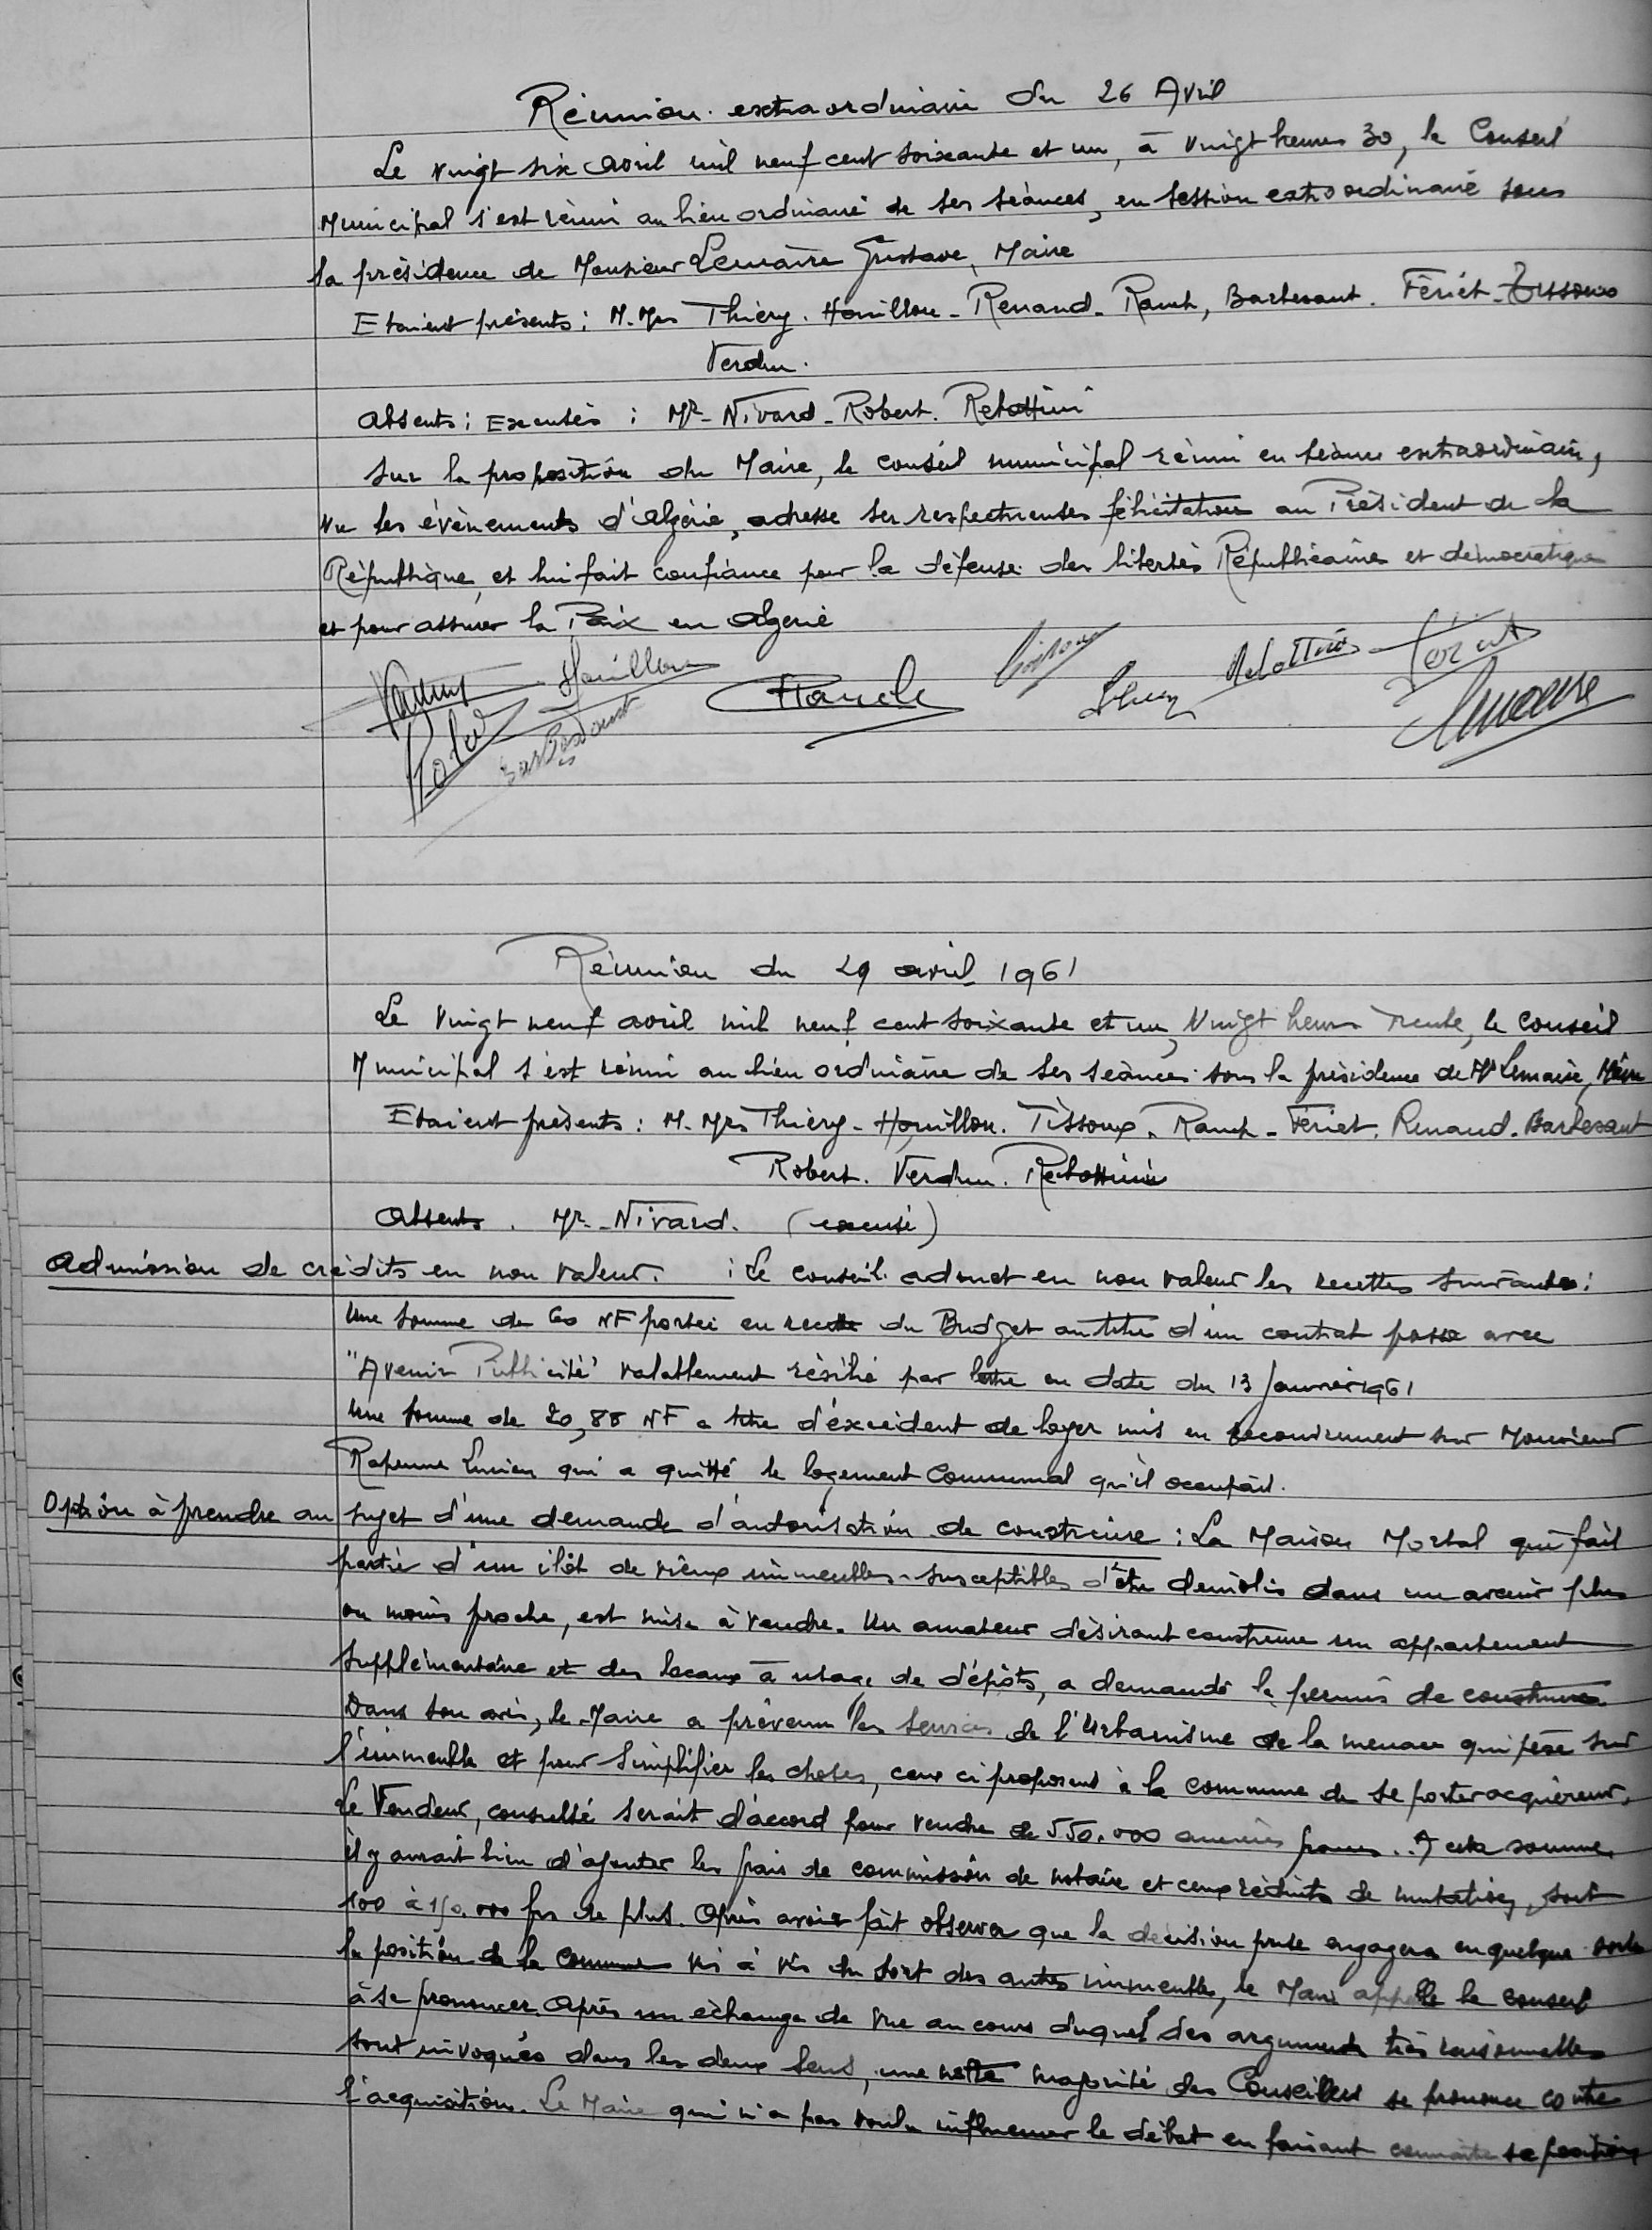 Réunion extraordinaire du 26 Avril
Le vingt six avril mil neuf cent soixante et un, à vingt heures 30, le Conseil
Municipal s'est réuni au lieu ordinaire de ses séances, en session extraordinaire sous
la présidence de Monsieur Lemaire Gustave, Maire
Etaient présents : M. Mrs Thiéry. Houillon - Renaud - Rauch, Barbesant. Fériet - Tissoux
Verdun.
Absents : Excusés : Mr - Nivard - Robert. Rebottini
Sur la proposition du Maire, le conseil municipal réuni en séance extraordinaire,
vu les évènements d'Algérie, adresse ses respectueuses félicitations au Président de la
République, et lui fait confiance pour la défense des libertés Républicaines et démocratiques
et pour assurer la Paix en Algérie
Houillon
Rauch Rebottini Fériet
Robert Barbesant Lemaire
Réunion du 29 avril 1961
Le vingt neuf avril mil neuf cent soixante et un, vingt heures trente, le conseil
Municipal s'est réuni au lieu ordinaire de ses séances sous la présidence de Mr Lemaire, Maire
Etaient présents : M. Mrs Thiéry - Houillon. Tissoux. Rauch - Fériet. Renaud. Barbesant
Robert. Verdun. Rebottini
Absents. Mr. Nivard. (excusé)
Admission de crédits en non valeur. : Le conseil admet en non valeur les recettes suivantes :
Une somme de 60 NF portée en recette du Budget au titre d'un contrat passé avec
"Avenir Publicité" valablement résilié par lettre en date du 13 Janvier 1961
Une somme de 20,88 NF a titre d'éxcédent de loyer mis en recouvrement sur Monsieur
Rapenne Lucien qui a quitté le logement Communal qu'il occupait.
Option à prendre au sujet d'une demande d'autorisation de construire : La Maison Mortal qui fait
partie d'un ilôt de vieux immeubles susceptibles d'être démolis dans un avenir plus
ou moins proche, est mise à vendre. Un amateur désirant construire un appartement
supplémentaire et des locaux à usage de dépôts, a demandé le permis de construire.
Dans son avis, le Maire a prévenu les services de l'Urbanisme de la menace qui pèse sur
l'immeuble et pour simplifier les choses, ceux ci proposent à la commune de se porter acquéreur.
Le Vendeur, consulté serait d'accord pour vendre de 550.000 anciens francs. A cette somme
il y aurait lieu d'ajouter les frais de commission de notaire et ceux réduits de mutation, soit
100 à 150.000 frs de plus. Après avoir fait observer que la décision prise engagera en quelque sorte
la position de la Commune vis à vis du sort des autres immeubles, le Maire appelle le conseil
à se prononcer. Après un échange de vue au cours duquel des arguments très raisonnables
sont invoqués dans les deux sens, une nette majorité des Conseillers se prononce contre
l'acquisition. Le Maire qui n'a pas voulu influencer le débat en faisant connaitre sa position